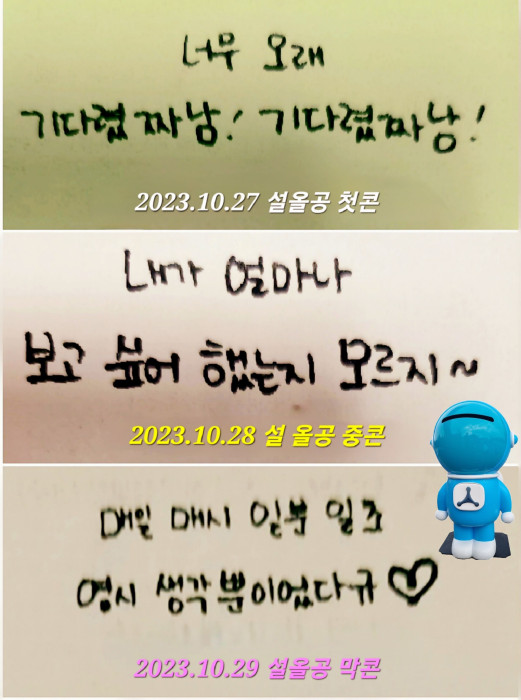 너무 오래
기다렸짜남! 기다렸짜남!
2023.10.27 설올공 첫콘
내가 얼마나
보고 싶어 했는지 모르지~
2023.10.28 설 올공 중콘
매일 매시 일분 일초
영시 생각뿐이었다규♡
2023.10.29 설올공 막콘